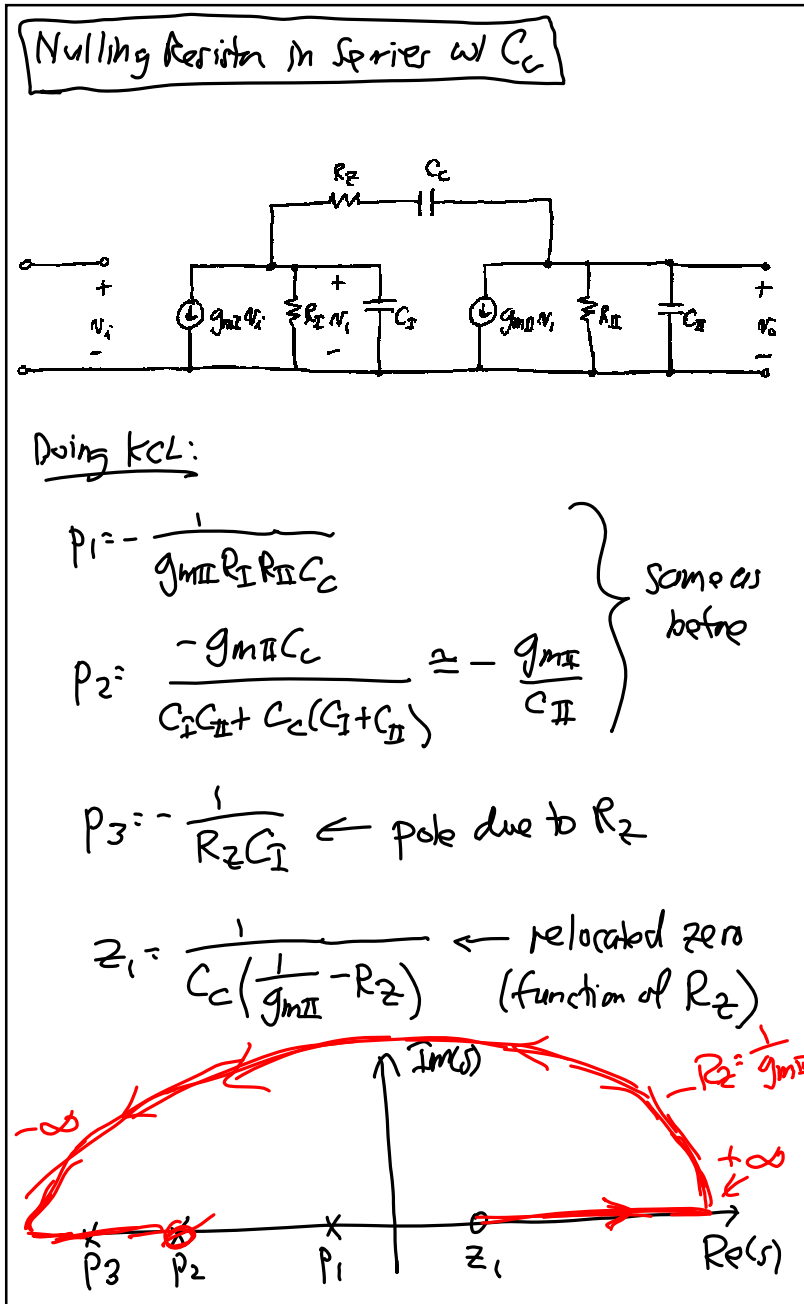 Nulling Resistor in Series w/ C_c
R_Z C_c
+ v_i - g_mI v_i R_I + v_1 - C_I g_mII v_1 R_II C_II + v_o -
Doing KCL:
p_1 = - 1 / (g_mII R_I R_II C_c)
p_2 = -g_mII C_c / (C_I C_II + C_c(C_I + C_II)) ≅ - g_mII / C_II
} same as before
p_3 = - 1 / (R_Z C_I) ← pole due to R_Z
Z_1 = 1 / (C_c(1/g_mII - R_Z)) ← relocated zero
(function of R_Z)
Im(s) R_Z = 1/g_mII
-∞ +∞
p_3 p_2 p_1 Z_1 Re(s)